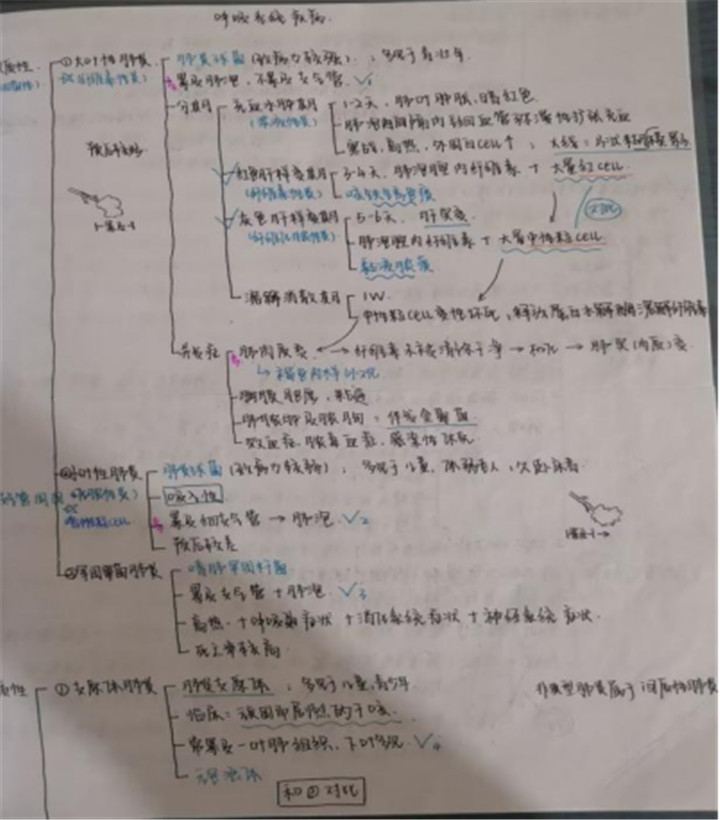 呼吸系统疾病.
①大叶性肺炎
(纤维素性炎)
肺炎球菌(致病力较强), 多见于青壮年
累及肺泡, 不累及支气管. √1
分期
充血水肿期
(浆液性炎)
1-2天, 肺叶肿胀, 暗红色
肺泡间隔内毛细血管弥漫性扩张充血
寒战, 高热, 外周白cell↑
红色肝样变期
(纤维素性炎)
3-4天, 肺泡腔内纤维素 + 大量红cell.
咳铁锈色痰
对比
灰色肝样变期
5-6天,
肺泡腔内纤维素 + 大量中性粒cell
黏液脓痰
溶解消散期
1W.
中性粒cell变性坏死, 释放蛋白水解酶溶解纤维素
并发症
肺肉质变 ← 纤维素不被清除干净 → 机化 → 肺实(肉质)变
胸膜肥厚, 粘连
肺脓肿及脓胸: 金葡菌
败血症, 脓毒血症, 感染性休克
②小叶性肺炎
(化脓性炎)
中性粒cell
肺炎球菌(致病力较弱), 多见于儿童, 体弱老人, 久卧床者
吸入性
累及细支气管 → 肺泡. √2
预后较差
③军团菌肺炎
嗜肺军团杆菌
累及支气管 + 肺泡. √3
高热 + 呼吸道症状 + 消化系统症状 + 神经系统症状.
死亡率较高
①支原体肺炎
肺炎支原体, 多见于儿童, 青少年
临床: 顽固而剧烈的干咳.
常累及一叶肺组织, 下叶多见. √4
非典型肺炎属于间质性肺炎
和②对比